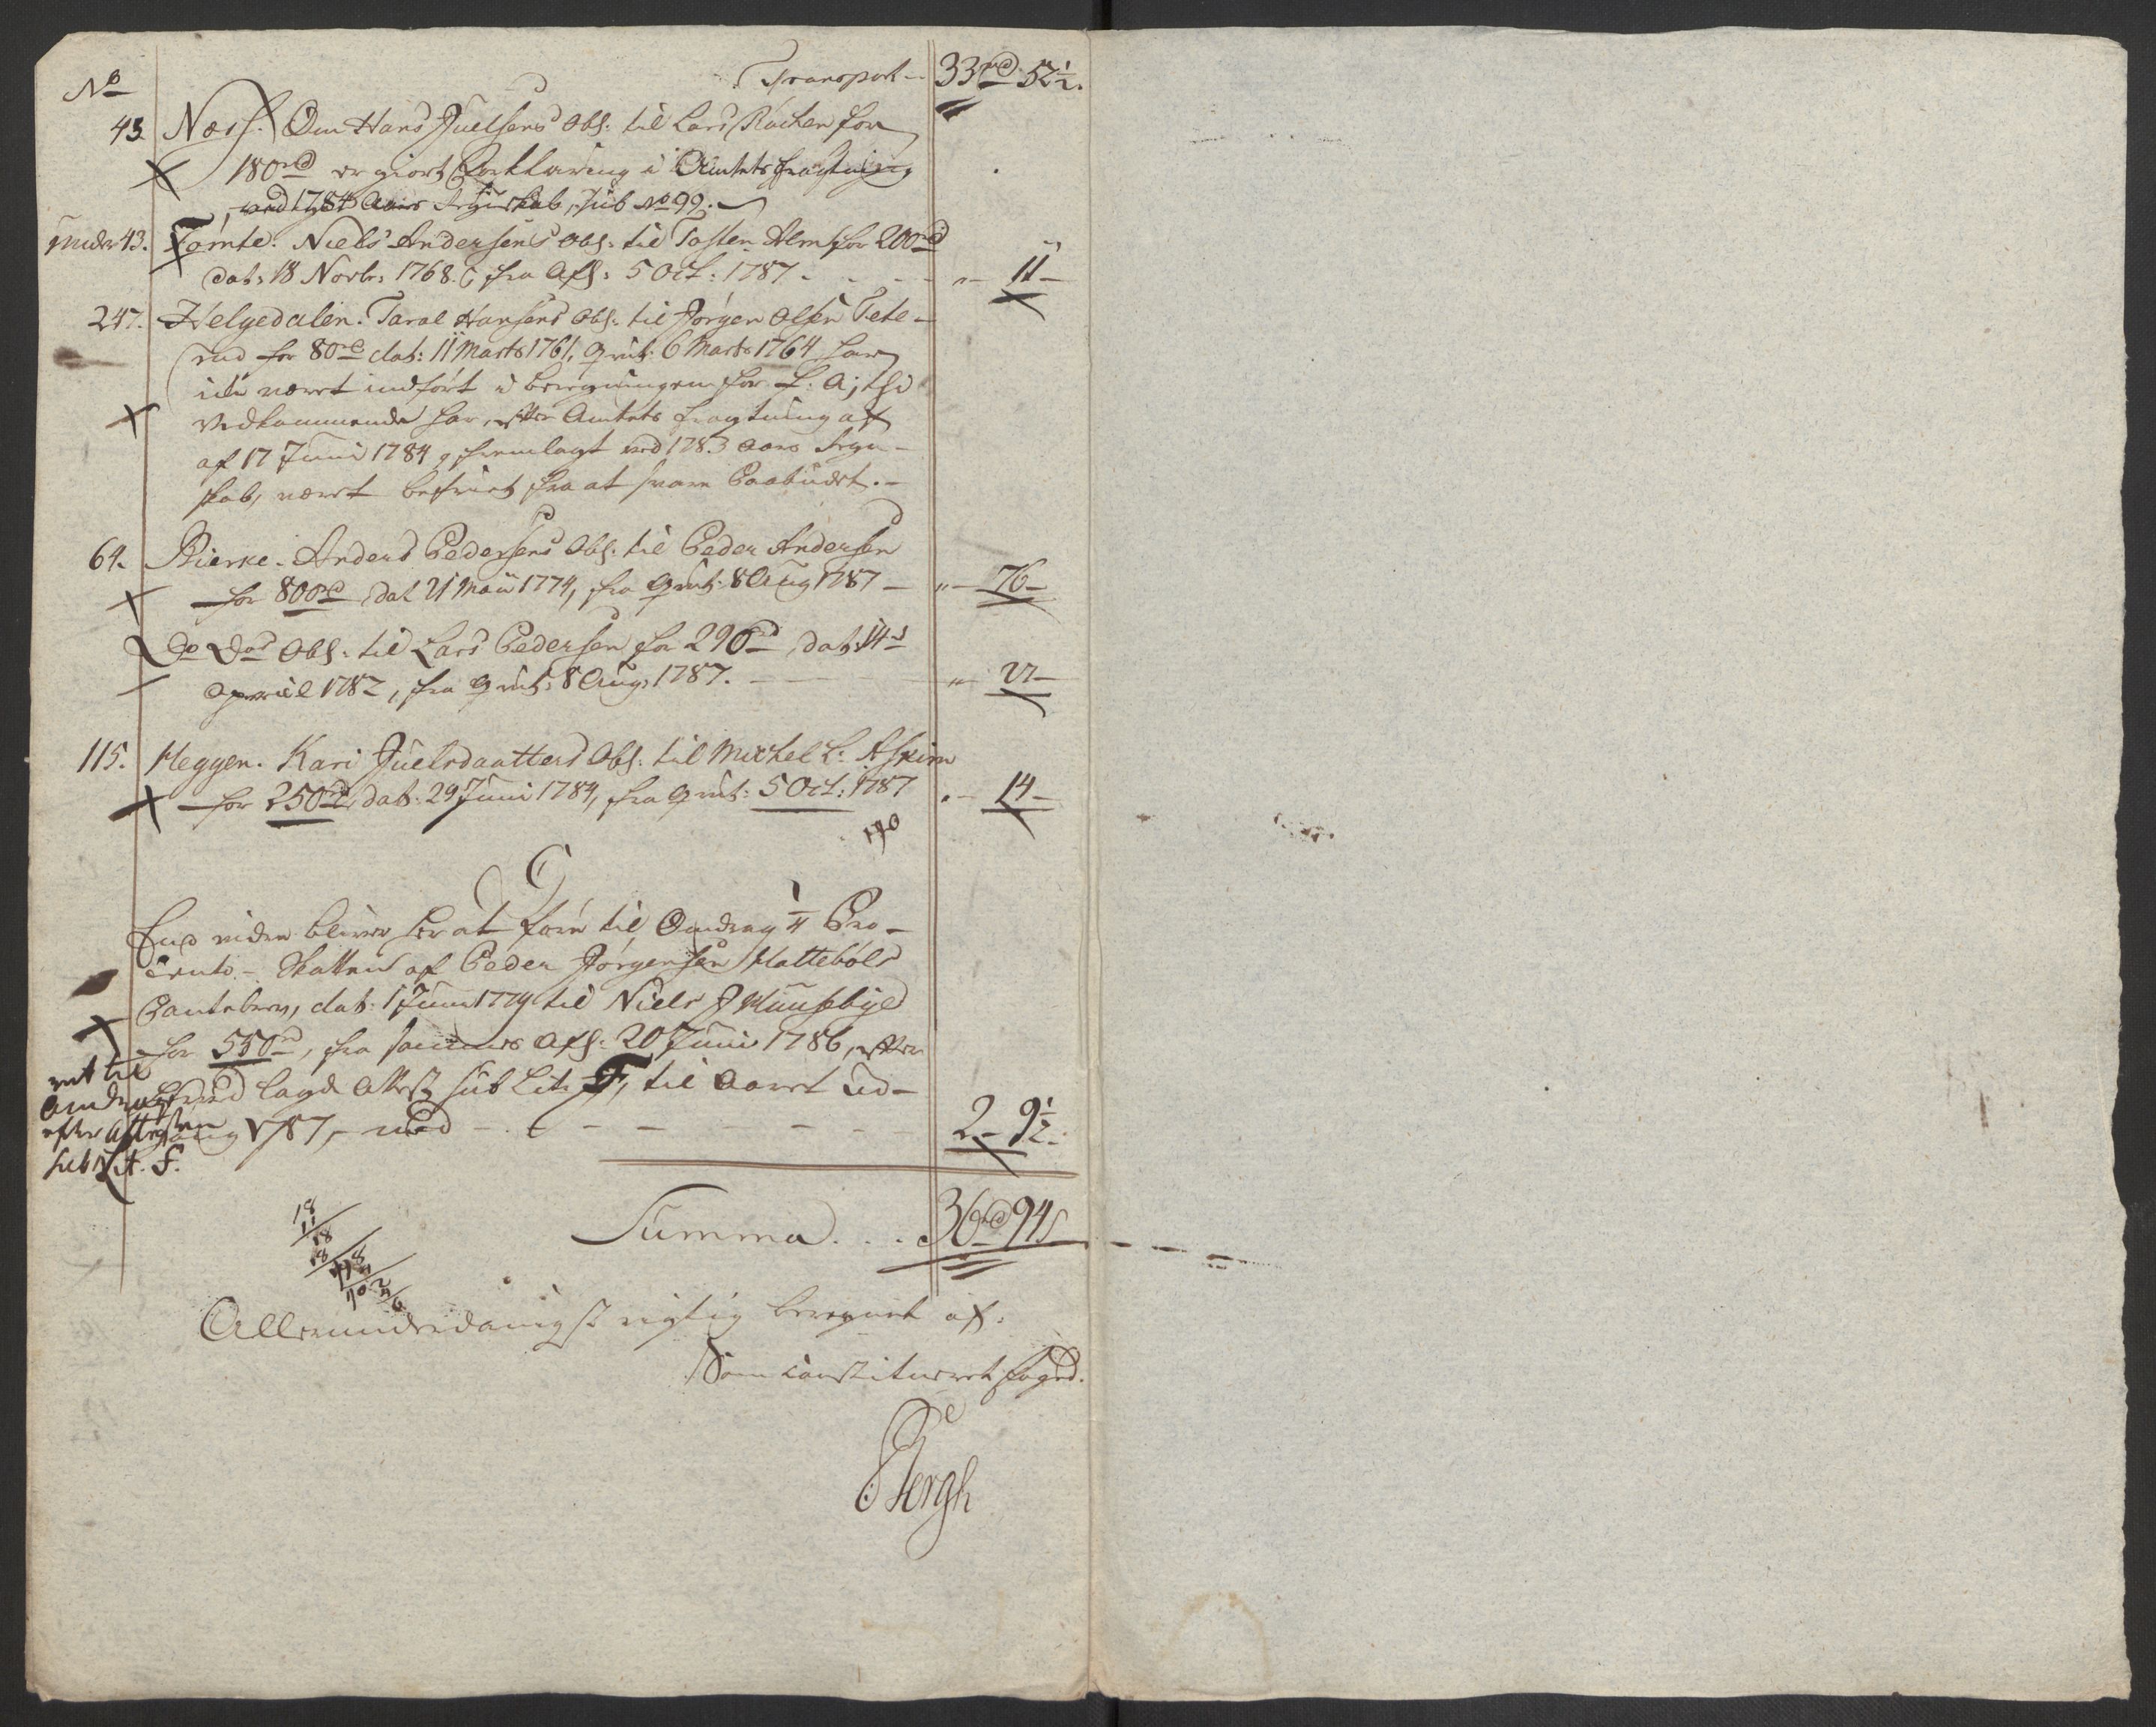 Transport - 33 rd 52 1/2.
No
43. Næss. Om Hans Juelsens Obl: til Lars Rachen for
180 rd er giort Forklaring i Amtets
ved 1784 Aars Regnskab, sub No 99.
under 43. Tomte. Niels Andersens Obl: til Tosten Alm for 200 rd
dat: 18 Novbr: 1768. fra Afl: 5 Oct: 1787 - - - - „ - 11 -
247. Helgedalen. Taral Hansens Obl: til Jørgen Olsen Tete-
rud for 80 rd dat: 11 Marts 1761, qvit: 6 Marts 1764 har
ikke været indført i beregningen for f: A; thi
Vedkommende har, efter Amtets
af 17 Junii 1784, fremlagt ved 1783 Aars Regn-
skab, været befriet fra at svare Paabudet. -
64. Bierke. Anders Pedersens Obl: til Peder Andersen
for 800 rd dat 21 Maii 1774, fra qvit: 8 Aug 1787 - „ - 76 -
Do Dos Obl: til Lars Pedersen for 296 rd dat: 14
April 1782, fra qvit: 8 Aug: 1787. - - „ - 27 -
115. Heggen. Kari Juelsdaatters Obl: til Michel L: Askim
for 250 rd, dat: 29 Junii 1784, fra qvit: 5 Oct: 1787 „ - 14 -
C
End videre bliver her at føre til Omdrag 1/4 Pro-
Cento - Skatten af Peder Jørgensen Hattebøls
Pantebrev, dat: 1 Junii 1779 til Niels J Muusebye
for 550 rd, fra sammes Afl: 20 Junii 1786, efter
lagd Attest sub Lit: F, til Aaret Ud-
gang 1787, med - - - - - - 2 - 9 1/2.
ret til
Omdrag
efter Attesten
sub Lit. F.
Summa . . . 36 rd 94 s
Allerunderdanigst rigtig beregnet af.
Som Constitueret Foged.
Bergh